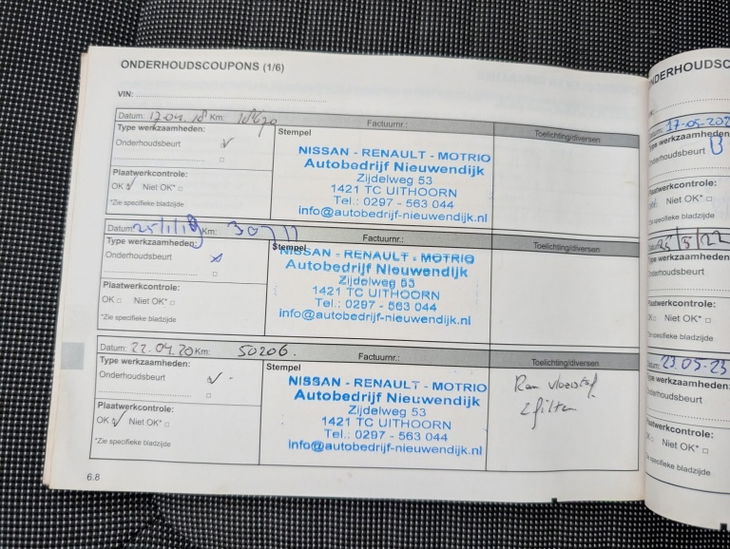 ONDERHOUDSCOUPONS (1/6)
VIN:
Datum: 12.04.18 Km:
Factuurnr.:
Toelichting/diversen
Type werkzaamheden:
Stempel
Onderhoudsbeurt
NISSAN - RENAULT - MOTRIO
Autobedrijf Nieuwendijk
Zijdelweg 53
1421 TC UITHOORN
Tel.: 0297 - 563 044
info@autobedrijf-nieuwendijk.nl
Plaatwerkcontrole:
OK Niet OK*
*Zie specifieke bladzijde
Datum: 25/1/19 Km: 30711
Factuurnr.:
Toelichting/diversen
Type werkzaamheden:
Stempel
Onderhoudsbeurt
NISSAN - RENAULT - MOTRIO
Autobedrijf Nieuwendijk
Zijdelweg 53
1421 TC UITHOORN
Tel.: 0297 - 563 044
info@autobedrijf-nieuwendijk.nl
Plaatwerkcontrole:
OK Niet OK*
*Zie specifieke bladzijde
Datum: 22.04.20 Km: 50206.
Factuurnr.:
Toelichting/diversen
Type werkzaamheden:
Stempel
Onderhoudsbeurt
NISSAN - RENAULT - MOTRIO
Autobedrijf Nieuwendijk
Zijdelweg 53
1421 TC UITHOORN
Tel.: 0297 - 563 044
info@autobedrijf-nieuwendijk.nl
Rem vloeistof
2 filters
Plaatwerkcontrole:
OK Niet OK*
*Zie specifieke bladzijde
6.8
NDERHOUDSC
17-05-202
werkzaamheden:
Onderhoudsbeurt
Plaatwerkcontrole:
Niet OK*
specifieke bladzijde
25/5/22
Type werkzaamheden:
Onderhoudsbeurt
Plaatwerkcontrole:
Niet OK*
specifieke bladzijde
23.05.23
Type werkzaamheden:
Onderhoudsbeurt
Plaatwerkcontrole:
Niet OK*
specifieke bladzijde